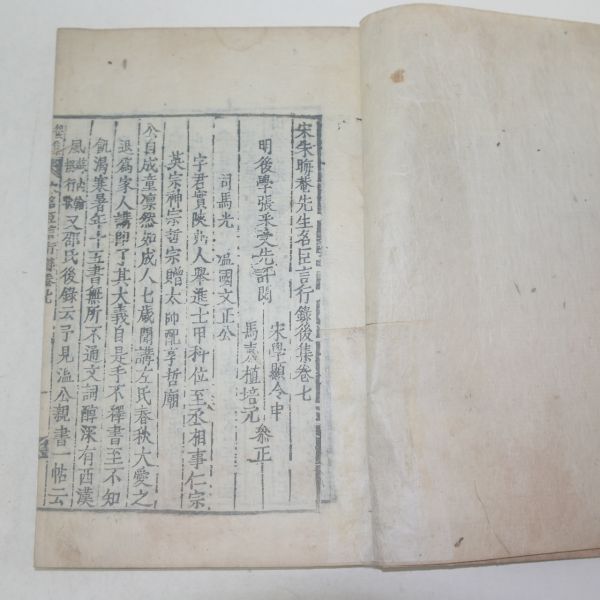 宋朱晦菴先生名臣言行錄後集卷七
明後學張采受先評閱
宋學顯令申
馬嘉植培元 叅正
司馬光 温國文正公
字君實陝州人舉進士甲科位至丞相事仁宗
英宗神宗哲宗贈太師配享哲廟
公自成童凛然如成人七歲聞講左氏春秋大愛之
退爲家人講卽了其大義自是手不釋書至不知
飢渴寒暑年十五書無所不通文詞醇深有西漢
風 撰行狀 又邵氏後錄云予見溫公親書一帖云
名臣言行錄卷七